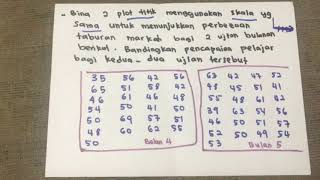 - Bina 2 plot titik menggunakan skala yg
sama untuk menunjukkan perbezaan
taburan markah bagi 2 ujian bulanan
berikut. Bandingkan pencapaian pelajar
bagi kedua-dua ujian tersebut
35 56 42 56
65 51 58 42
46 61 46 48
54 50 41 50
50 69 57 51
48 60 62 55
50 Bulan 4
63 42 47 52
48 45 51 41
55 48 61 42
39 63 54 56
46 50 59 57
52 50 49 54
53 Bulan 5